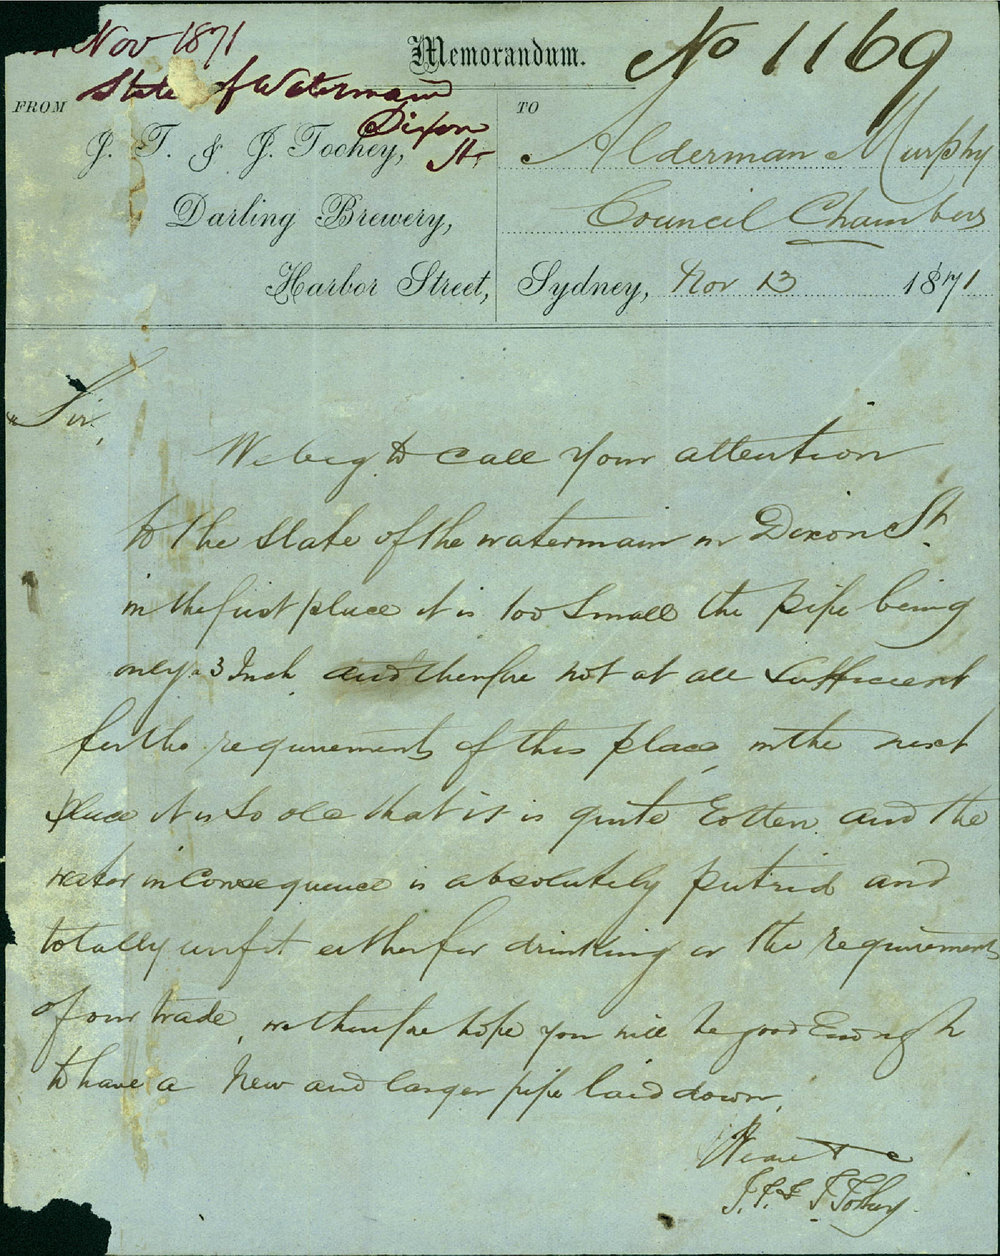 Nov 1871
State of Watermain
Dixon
St.
Memorandum.
No 1169
FROM
J. T. & J. Toohey,
Darling Brewery,
Harbor Street,
TO
Alderman Murphy
Council Chambers
Sydney, Nov 13 1871
Sir,
We beg to call your attention
to the state of the watermain in Dixon St.
in the first place it is too small the pipe being
only 3 Inch and therefore not at all sufficient
for the requirements of this place, in the next
place it is so old that it is quite Rotten and the
water in Consequence is absolutely putrid and
totally unfit either for drinking or the requirements
of our trade, we therefore hope you will be good Enough
to have a New and larger pipe laid down,
We are &c
J. T. & J. Toohey